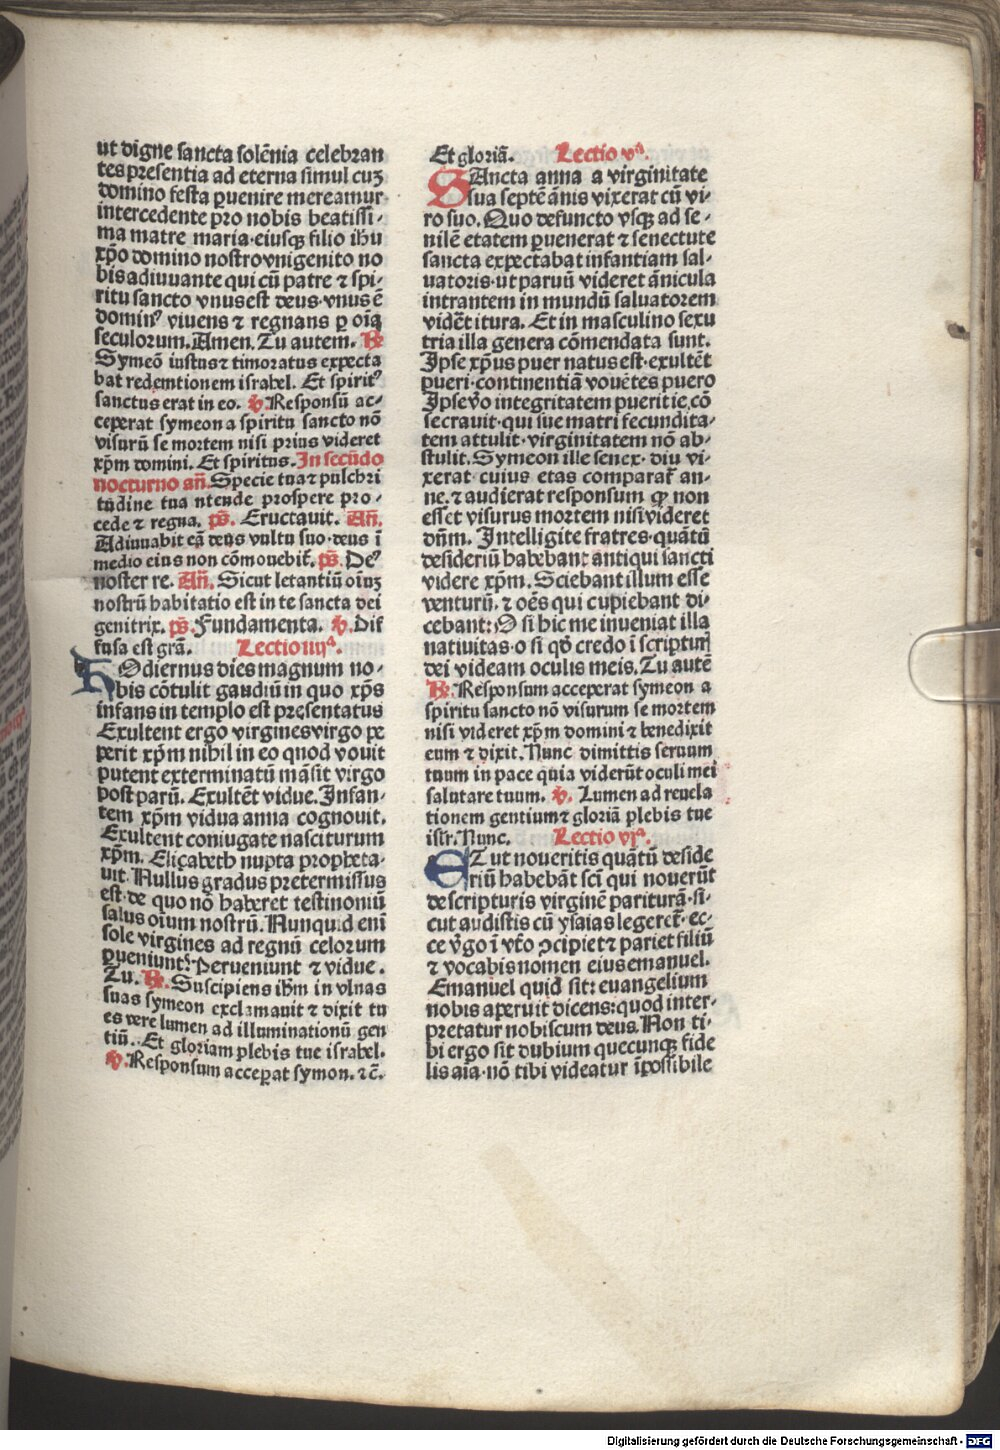 ut digne sancta solēnia celebran
tes presentia ad eterna simul cuʒ
domino festa ꝑuenire mereamur
intercedente pro nobis beatissi-
ma matre maria·eiusqꝫ filio ihu
xp̄o domino nostro vnigenito no
bis adiuuante qui cū patre ⁊ spi-
ritu sancto vnus est deus·vnus ē
domin⁹ viuens ⁊ regnans ꝑ oīa
seculorum. Amen. Tu autem. ℟.
Symeō iustus ⁊ timoratus expecta
bat redemtionem israhel. Et spirit⁹
sanctus erat in eo. ℣. Responsū ac-
ceperat symeon a spiritu sancto nō
visurū se mortem nisi prius videret
xp̄m domini. Et spiritus. In secūdo
nocturno an̄. Specie tua ⁊ pulchri
tudine tua ntende prospere pro-
cede ⁊ regna. ps̄. Eructauit. An̄.
Adiuuabit eā deus vultu suo·deus ī
medio eius non cōmouebit̄. ps̄. De⁹
noster re. An̄. Sicut letantiū oīuʒ
nostrū habitatio est in te sancta dei
genitrix. ps̄. Fundamenta. ℣. Dif
fusa est grā. Lectio iiijᵃ.
HOdiernus dies magnum no-
bis cōtulit gaudiū in quo xp̄s
infans in templo est presentatus
Exultent ergo virgines virgo pe
perit xp̄m nihil in eo quod vouit
putent exterminatū māsit virgo
post partū. Exultēt vidue. Infan-
tem xp̄m vidua anna cognouit.
Exultent coniugate nasciturum
xp̄m. Elizabeth nupta propheta-
uit. Nullus gradus pretermissus
est·de quo nō haberet testinoniū
salus oīum nostrū. Nunquid enī
sole virgines ad regnū celorum
ꝑueniunt? Perueniunt ⁊ vidue.
Tu. ℟. Suscipiens ihm in vlnas
suas symeon exclamauit ⁊ dixit tu
es vere lumen ad illuminationū gen
tiū. Et gloriam plebis tue israhel.
℣. Responsum acceꝑat symon. ⁊ c̄.
Et gloriā. Lectio vᵃ.
SAncta anna a virginitate
sua septē ānis vixerat cū vi-
ro suo. Quo defuncto vsqꝫ ad se-
nilē etatem ꝑuenerat ⁊ senectute
sancta expectabat infantiam sal-
uatoris·ut paruū videret ānicula
intrantem in mundū saluatorem
vidēt itura. Et in masculino sexu
tria illa genera cōmendata sunt.
Ipse xp̄us puer natus est·exultēt
pueri·continentiā vouētes puero
Ipse v̄o integritatem pueritie, cō
secrauit·qui sue matri fecundita-
tem attulit·virginitatem nō ab-
stulit. Symeon ille senex·diu vi-
xerat·cuius etas comparat̄ an-
ne. ⁊ audierat responsum ꝙ non
esset visurus mortem nisi videret
dn̄m. Intelligite fratres·quātū
desideriū habebant antiqui sancti
videre xp̄m. Sciebant illum esse
venturū. ⁊ oēs qui cupiebant di-
cebant: O si hic me inueniat illa
natiuitas·o si qd̄ credo ī scripturꝭ
dei videam oculis meis. Tu autē
℟. Responsum acceperat symeon a
spiritu sancto nō visurum se mortem
nisi videret xp̄m domini ⁊ benedixit
eum ⁊ dixit. Nunc dimittis seruum
tuum in pace quia viderūt oculi mei
salutare tuum. ℣. Lumen ad reuela
tionem gentium ⁊ gloriā plebis tue
isr̄. Nunc. Lectio vjᵃ.
ET ut noueritis quātū deside
riū habebāt sc̄i qui nouerūt
de scripturis virginē parituрā·si-
cut audistis cū ysaias legeret̄·ec-
ce v̄go ī vt̄o ꝯcipiet ⁊ pariet filiū
⁊ vocabis nomen eius emanuel.
Emanuel quid sit: euangelium
nobis aperuit dicens: quod inter-
pretatur nobiscum deus. Non ti-
bi ergo sit dubium quecunqꝫ fide
lis aīa·nō tibi videatur īpossibile
Digitalisierung gefördert durch die Deutsche Forschungsgemeinschaft - DFG